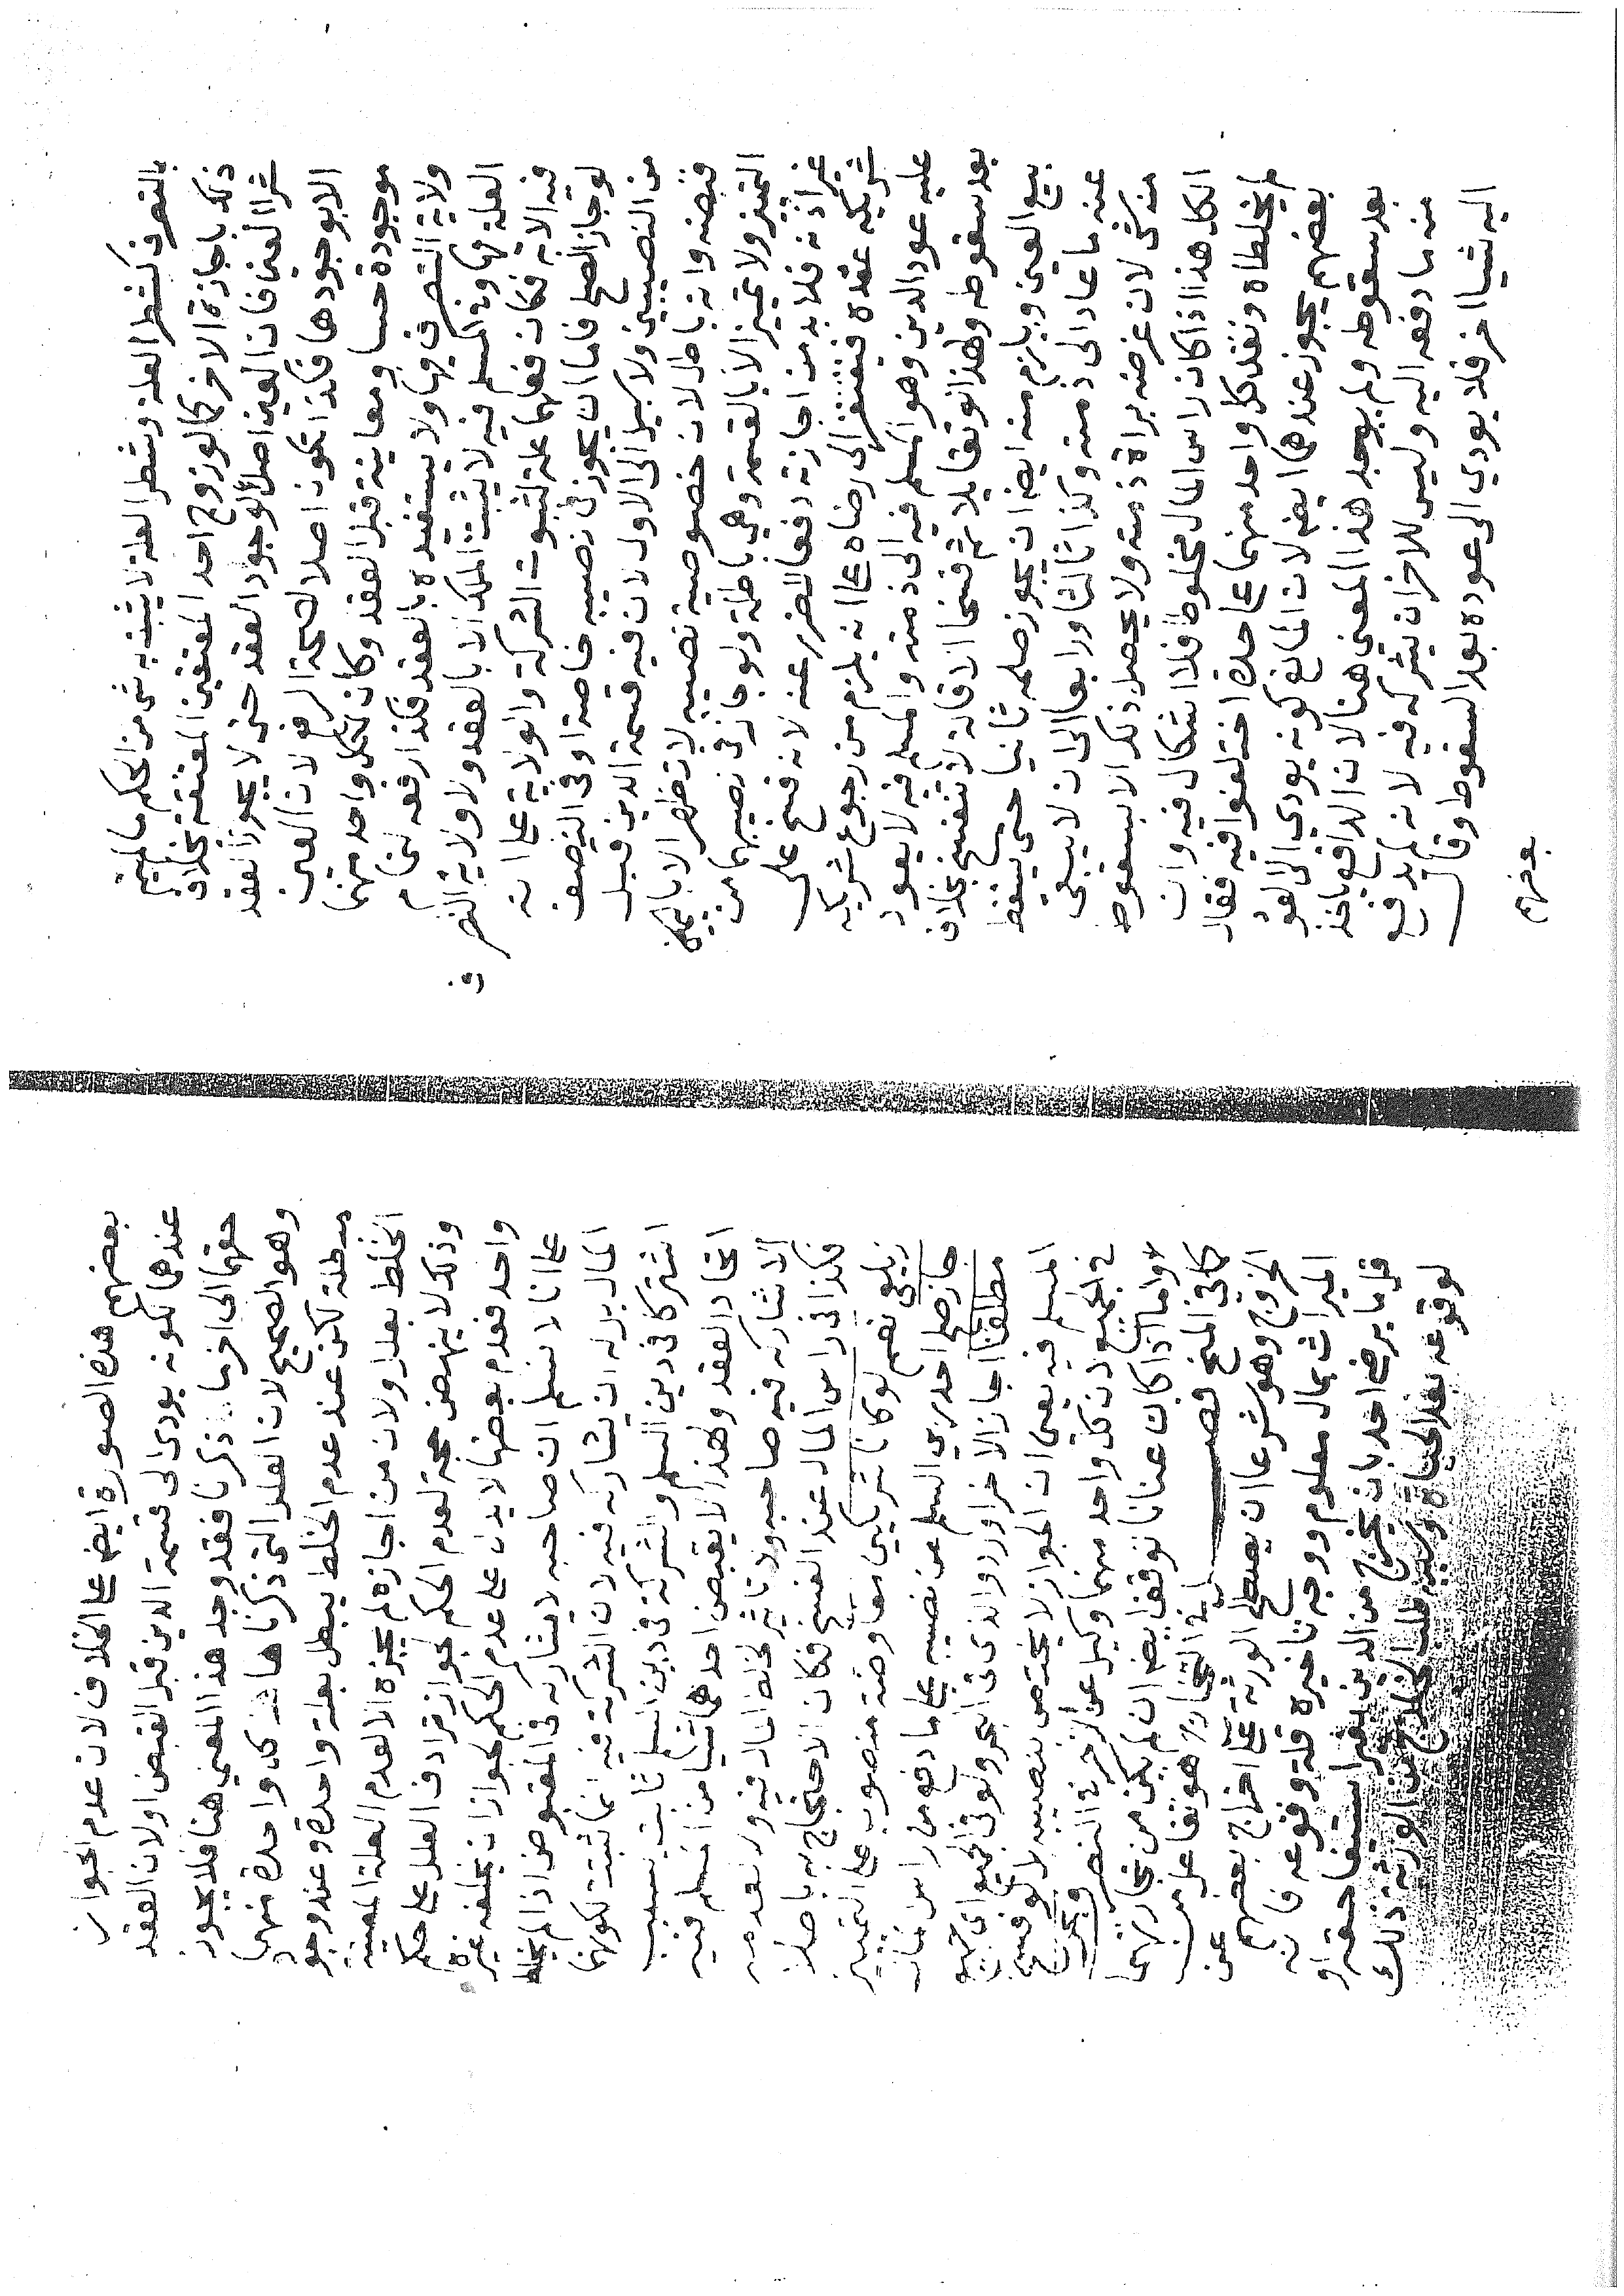 بالتصرف كشطر العلة وشطر العلة لا يثبت به شي من الحكم ما لم يتم
ذلك باجازة الاخر كما لو زوج احد المعتقين المعتقة بخلاف
شرا العين فان العين اصل لوجود العقد حتى لا يجوز العقد
الا بوجودها فكذا تكون اصلا لصحة الرفع لان العين
موجودة حسا ومعاينة قبل العقد وكان لكل واحد منهما
ولاية التصرف فيها ولا يستفيده بالعقد فكذا رفعه لتمام
العلة فيها وفي المسلم فيه لا يثبت الملك الا بالعقد ولا ولاية التصرف
فيه الا به فكان فعلهما علة لثبوت الشركة والولاية على انه
لو جاز الصلح فاما ان يجوز في نصيبه خاصة او في النصف
من النصيبين ولا سبيل الى الاول لان فيه قسمة الدين قبل
قبضه وانه باطل لان خصوصية نصيبه لا تظهر الا بالتمييز
التميز ولا تميز الا بالقسمة وهي باطلة ولو جاز في نصيبهما من
غير اذنه فلا بد من اجازته دفعا للضرر عنه لانه فسخ على
شريكه عقده فيفتقر الى رضاه على انه يلزم من رجوع شريكه
عليه عود الدين وهو المسلم فيه الى ذمته والمسلم فيه لا يعود
بعد سقوطه ولهذا لو تقايلا ثم فسخا الاقالة لا تنفسخ بخلاف
بيع العين ويلزم منه ايضا ان يجوز صلحه ثانيا حتى يسقط
عنه ما عاد الى ذمته وكذا ثالثا ورابعا الى ان لا يبقى
منه شي لان غرضه براة ذمته ولا يحصل ذلك الا بسقوط
الكل هذا اذا كان راس المال مخلوطا فلا اشكال فيه وان
لم يخلطاه ونقد كل واحد منهما على حدة اختلفوا فيه فقال
بعضهم يجوز عندهما ايضا لان المانع كونه يودي الى العود
بعد سقوطه ولم يوجد هذا المعنى هنا لان الدافع ياخذ
منه ما دفعه اليه وليس للاخر ان يشركه فيه لانه لم يدفع
اليه شيا اخر فلا يودي الى عوده بعد السقوط وقال
بعضهم
بعضهم هذه الصورة ايضا على الخلاف لان عدم الجواز
عندهما لكونه يودي الى قسمة الدين قبل القبض او لان العقد
حقهما الى اخر ما ذكرنا فقد وجد هذا المعنى هنا فلا يجوز
وهو الصحيح لان العلل التي ذكرناها كل واحدة منها
مبطلة لكن عند عدم الخلط يبطل بعلة واحدة وعند وجود
الخلط بعلل ولان من اجازه لم يجزه الا لعدم العلة المعينة
وذلك لا ينهض حجة لعدم الحكم لجواز ترادف العلل على حكم
واحد فعدم بعضها لا يدل على عدم الحكم لجواز ان يخلفه غيره
على انا لا نسلم ان صاحبه لا يشاركه في المقبوض اذا لم يخلط
المال بل له ان يشاركه فيه لان الشركة فيه انما ثبتت لكونهما
اشتركا في دين السلم والشركة في دين السلم ثابت بسبب
اتحاد العقد ولهذا لا يقبض احدهما شيا من المسلم فيه
الا شاركه فيه صاحبه ولا تاثير لخلط المال فيه ولا لعدمه
فكذا في راس المال عند الفسخ فكان الاحتجاج به باطلا
زيلعي نعم لو كانا شريكين مفاوضة منصوب على التمييز
جاز صلح احد ربي السلم عن نصيبه على ما دفع من راس ماله
مطلقا اجاز الاخر او رد والذي في البحر ولو في الجميع اي
المسلم فيه يعني ان الجواز لا يختص بنصيبه لا لو فسخ
في الجميع لان كل واحد منهما وكيل عن الاخر في التصرف
واما اذا كان عنانا توقف ايضا ان لم يكن من تجارتهما
كما في المنح فصل في التخارج هو تفاعل من
الخروج وهو شرعا ان يصطلح الورثة على اخراج بعضهم عن
الميراث بمال معلوم ووجه تاخيره قلة وقوعه فانه
قلما يرضى احد بان يخرج من الدين بغير استيفا حقه او
لوقوعه بعد الحياة وسببه طلب الخارج من الورثة ذلك